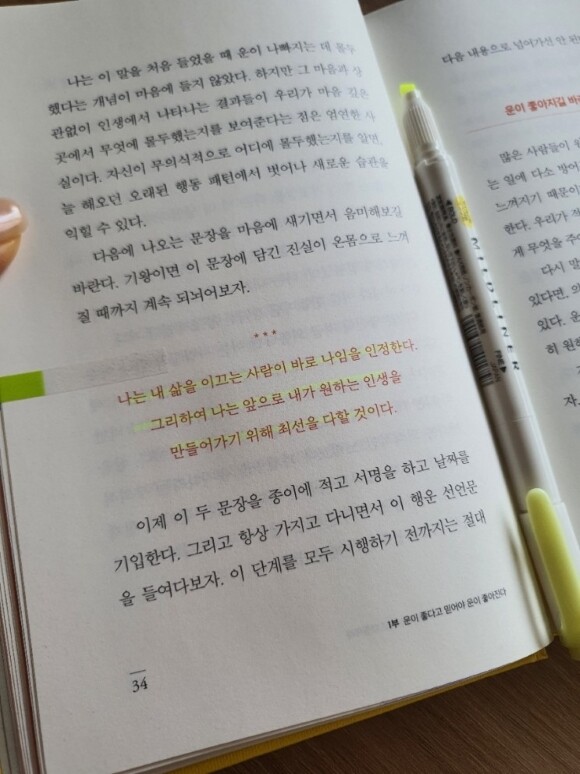 나는 이 말을 처음 들었을 때 운이 나빠지는 데 몰두
했다는 개념이 마음에 들지 않았다. 하지만 그 마음과 상
관없이 인생에서 나타나는 결과들이 우리가 마음 깊은
곳에서 무엇에 몰두했는지를 보여준다는 점은 엄연한 사
실이다. 자신이 무의식적으로 어디에 몰두했는지를 알면,
늘 해오던 오래된 행동 패턴에서 벗어나 새로운 습관을
익힐 수 있다.
다음에 나오는 문장을 마음에 새기면서 음미해보길
바란다. 기왕이면 이 문장에 담긴 진실이 온몸으로 느껴
질 때까지 계속 되뇌어보자.
***
나는 내 삶을 이끄는 사람이 바로 나임을 인정한다.
그리하여 나는 앞으로 내가 원하는 인생을
만들어가기 위해 최선을 다할 것이다.
이제 이 두 문장을 종이에 적고 서명을 하고 날짜를
기입한다. 그리고 항상 가지고 다니면서 이 행운 선언문
을 들여다보자. 이 단계를 모두 시행하기 전까지는 절대
1부 운이 좋다고 믿어야 운이 좋아진다
34
다음 내용으로 넘어가선 안 된
운이 좋아지길 바라
많은 사람들이
는 일에 다소 방어
느껴지기 때문이
한다. 우리가
게 무엇을 주
다시 말
있다면,
있다. 운
히 원
자.